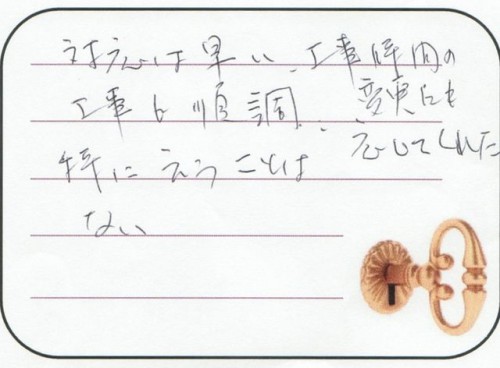 対応は早い、工事時間の
変更にも
工事も順調、
応じてくれた
特に言うことは
ない